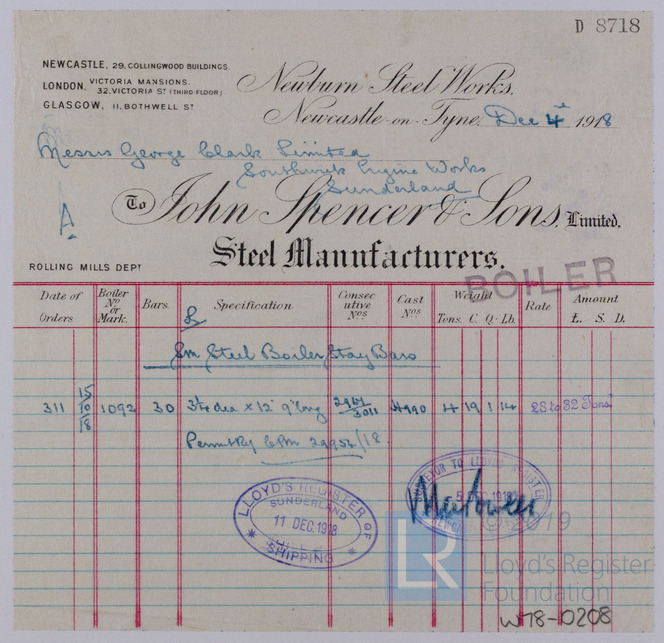 D 8718
NEWCASTLE, 29. COLLINGWOOD BUILDINGS.
LONDON. VICTORIA MANSIONS. 32. VICTORIA ST (THIRD FLOOR)
GLASGOW, 11. BOTHWELL ST
Newburn Steel Works.
Newcastle-on-Tyne, Dec 4th 1918
Messrs George Clark Limited
Southwick Engine Works
Sunderland
A
To John Spencer & Sons, Limited.
Steel Manufacturers.
ROLLING MILLS DEPT
BOILER
Date of Orders Boiler No or Mark. Bars. Specification Consecutive Nos Cast Nos Weight Tons. C. Q. Lb. Rate Amount £. S. D.
Sm Steel Boiler Stay Bars
311 15/10/18 1092 30 dia x 12' 9" long 2951/3011 4990 4 19 1 14 28 to 32 Tons
LLOYD'S REGISTER OF SHIPPING
SUNDERLAND
11 DEC. 1918
SURVEYOR TO LLOYD'S REGISTER
2019
LR
Lloyd's Register
Foundation
W78-0208